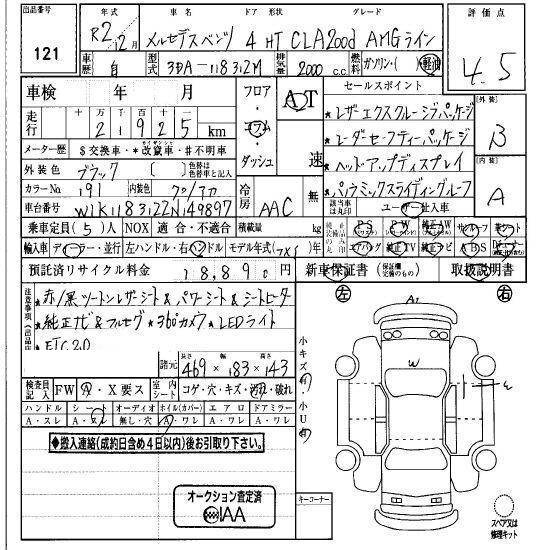 出品番号 121
年式 R2年12月 車名 メルセデスベンツ ドア 形状 4 HT グレード CLA200d AMGライン
評価点 4.5
車歴 自 型式 3DA-118312M 排気量 2000 c.c. 燃料 ガソリン・( )軽油
車検 年 月
走行 十万 2万 1千 9百 2十 5 km
メーター歴 $交換車・*改竄車・#不明車
外装色 ブラック 色替は色替車と記入
カラーNo 191 内装色 クロ/アカ
車台番号 W1K1183122N149897
フロア・コラム・ダッシュ
AT 速
冷房 AAC 無
セールスポイント
★レザーエクスクルーシブパッケージ
★レーダーセーフティーパッケージ
★ヘッドアップディスプレイ
★パノラミックスライディングルーフ
該当車は丸印 ユーザー仕入車
外装 B
内装 A
乗車定員(5)人 NOX 適合・不適合 積載量 kg
純正完備品のみ丸印 PS PW 純正AW サンルーフ 革シート
輸入車 ディーラー・並行 左ハンドル・右ハンドル モデル年式( )年 エアバッグ 純正TV 純正ナビ ABS
預託済リサイクル料金 18,890円 新車保証書(保証欄完備のもの) 取扱説明書
注意事項(出品店
★赤/黒ツートンレザーシート&パワーシート&シートヒーター
★純正ナビ&フルセグ★360°カメラ★LEDライト
ETC2.0
諸元 長さ 469 × 幅 183 × 高さ 143
検査員記入 FW A・X要ス 室内シート コゲ・穴・キズ・汚・破れ
ハンドル シート オーディオ ホイル(カバー) エアロ ドアミラー
A・スレ A・スレ 無し・穴 A・ワレ A・ワレ A・ワレ
◆搬入連絡(成約日含め4日以内)後お引取り下さい。◆
小キズ有・小U有
左 右
A1
W
キーコーナー
スペア又は修理キット
オークション査定済
IAA